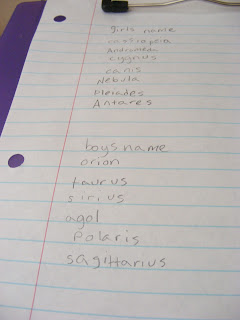 girls name
cassiopeia
Andromeda
cygnus
canis
Nebula
Pleiades
Antares
boys name
orion
taurus
sirius
agol
Polaris
sagittarius